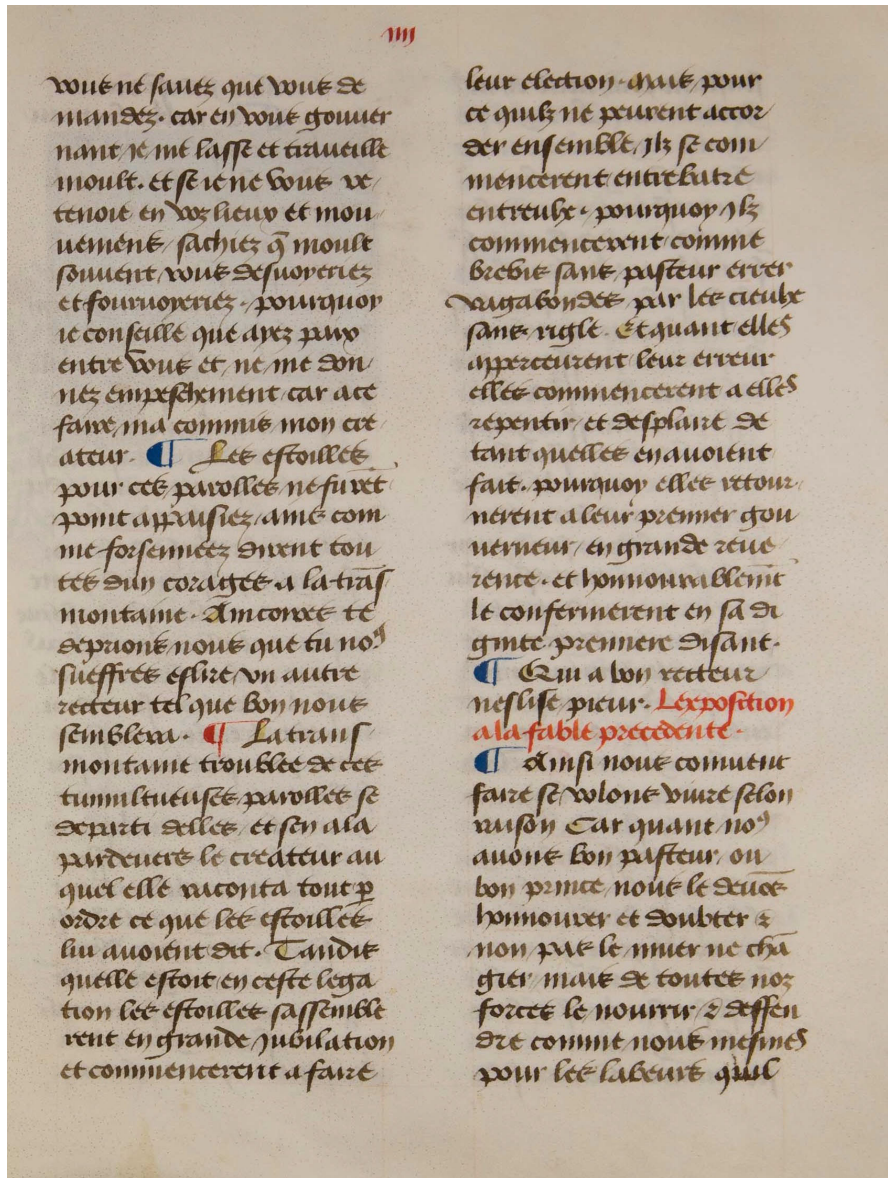 iiii
vous ne sauez que vous de
mandez. car en vous gouuer
nant ie me lasse et traueille
moult. et se ie ne vous re
tenoie en voz lieux et mou
uemens sachiez q̄ moult
souuent vous desuoyeriez
et fouruoyeriez. pourquoy
ie conseille que ayez paix
entre vous et ne me don
nez empeschement car ace
faire ma commis mon cre
ateur. ¶ Les estoilles
pour ces parolles ne furēt
point appaisiez ains com
me forsenneez dirent tou
tes dun corages a la trās
montaine. Ancores te
deprions nous que tu noꝰ
sueffres eslire vn autre
recteur tel que bon nous
semblera. ¶ La trans
montaine troublee de ces
tumultueuses parolles se
departi delles et sen ala
pardeuers le createur au
quel elle raconta tout ꝑ
ordre ce que les estoilles
lui auoient dit. Tandis
quelle estoit en ceste lega
tion les estoilles sassemble
rent en grande jubilation
et commencerent a faire
leur election. mais pour
ce quilz ne peurent accor
der ensemble, jlz se com
mencerent entrebatre
entreulx. pourquoy jlz
commencerent comme
brebis sans pasteur errer
vagabondes par les cieulx
sans rigle. Et quant elles
apperceurent leur erreur
elles commencerent a elles
repentir et desplaire de
tant quelles en auoient
fait. pourquoy elles retour
nerent a leur premier gou
uerneur en grande reue
rence. et honnourablemt̄
le confermerent en sa di
gnite premiere disant.
¶ Qui a bon recteur
neslise pieur. Lexposition
a la fable precedente.
¶ Ainsi nous conuient
faire se volons viure selon
raison Car quant noꝰ
auons bon pasteur ou
bon prince nous le deuōs
honnourer et doubter ⁊
non pas le muer ne chā
gier mais de toutes noz
forces le nourrir ⁊ deffen
dre comme nous mesmes
pour les labeurs quil